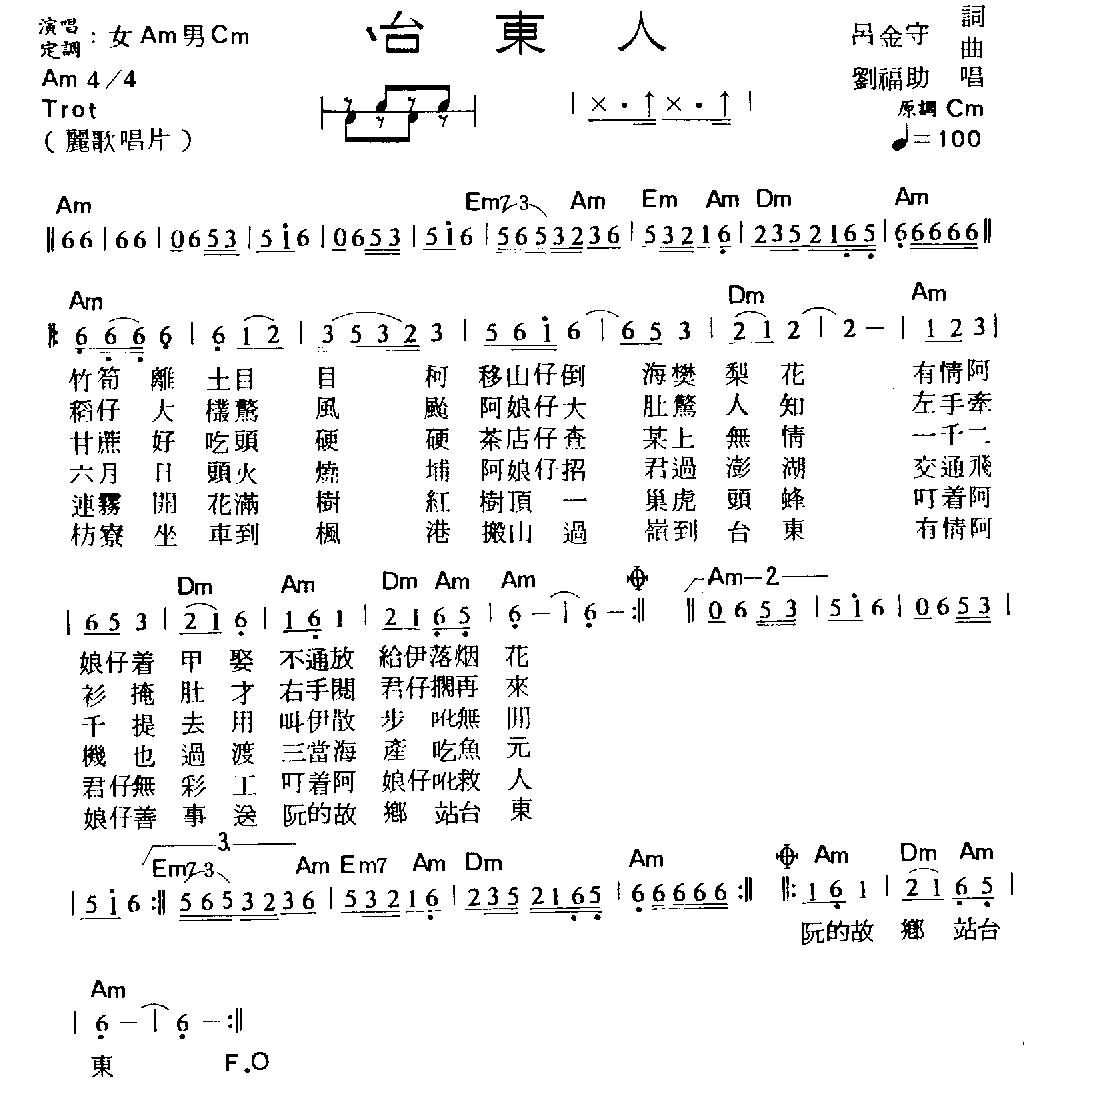 演唱定調：女Am男Cm 冶東人 呂金守 詞曲
Am 4/4 劉福助 唱
Trot |×・↑×・↑| 原調 Cm
（麗歌唱片） ♩=100
Am Em7 3 Am Em Am Dm Am
‖66|66|0653|5i6|0653|5i6|56532 36|532116|235 2165|666666‖
Am Dm Am
6 6 6 6|6 1 2|3 5 3 2 3|5 6 i 6|6 5 3|2 1 2|2 −|1 2 3|
竹筍離土目目柯移山仔倒海樊梨花有情阿
稻仔大檴驚風颱阿娘仔大肚驚人知左手牽
甘蔗好吃頭硬硬茶店仔查某上無情一千二
六月日頭火燒埔阿娘仔招君過澎湖交通飛
連霧開花滿樹紅樹頂一巢虎頭蜂叮着阿
枋寮坐車到楓港搬山過嶺到台東有情阿
Dm Am Dm Am Am Am−2−
|6 5 3|2 1 6|1 6 1|2 1 6 5|6 −|6 −:‖ ‖0 6 5 3|5 i 6|0 6 5 3|
娘仔着甲娶不通放給伊落烟花
衫掩肚才右手閱君仔擱再來
千提去用叫伊散步吪無閒
機也過渡三當海產吃魚元
君仔無彩工叮着阿娘仔吪救人
娘仔善事送阮的故鄉站台東
3.
Em7 3 Am Em7 Am Dm Am Am Dm Am
|5 i 6:‖5 6 5 3 2 3 6|5 3 2 1 6|2 3 5 2 1 6 5|6 6 6 6 6 6:‖ ‖:1 6 1|2 1 6 5|
阮的故鄉站台
Am
|6 −|6 −:‖
東 F.O